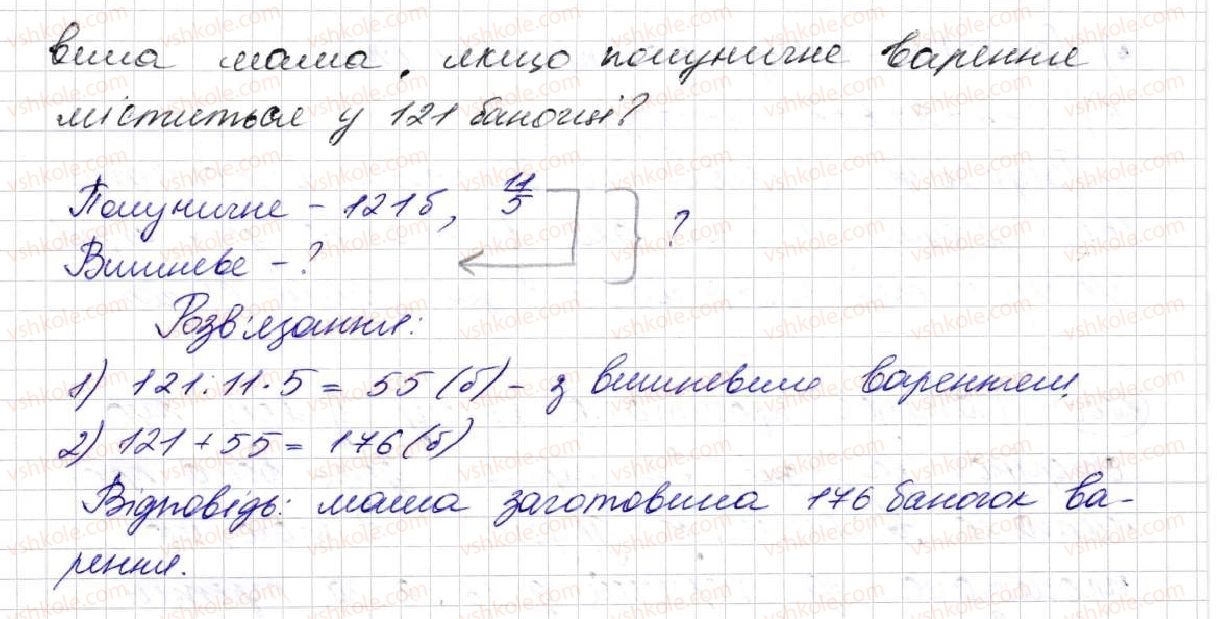 вила мама, якщо полуничне варення
міститься у 121 баночці?
Полуничне - 121б, 11/5
Вишневе - ? ?
Розв'язання:
1) 121:11·5 = 55 (б) - з вишневим варенням,
2) 121+55= 176 (б)
Відповідь: мама заготовила 176 баночок ва-
рення.